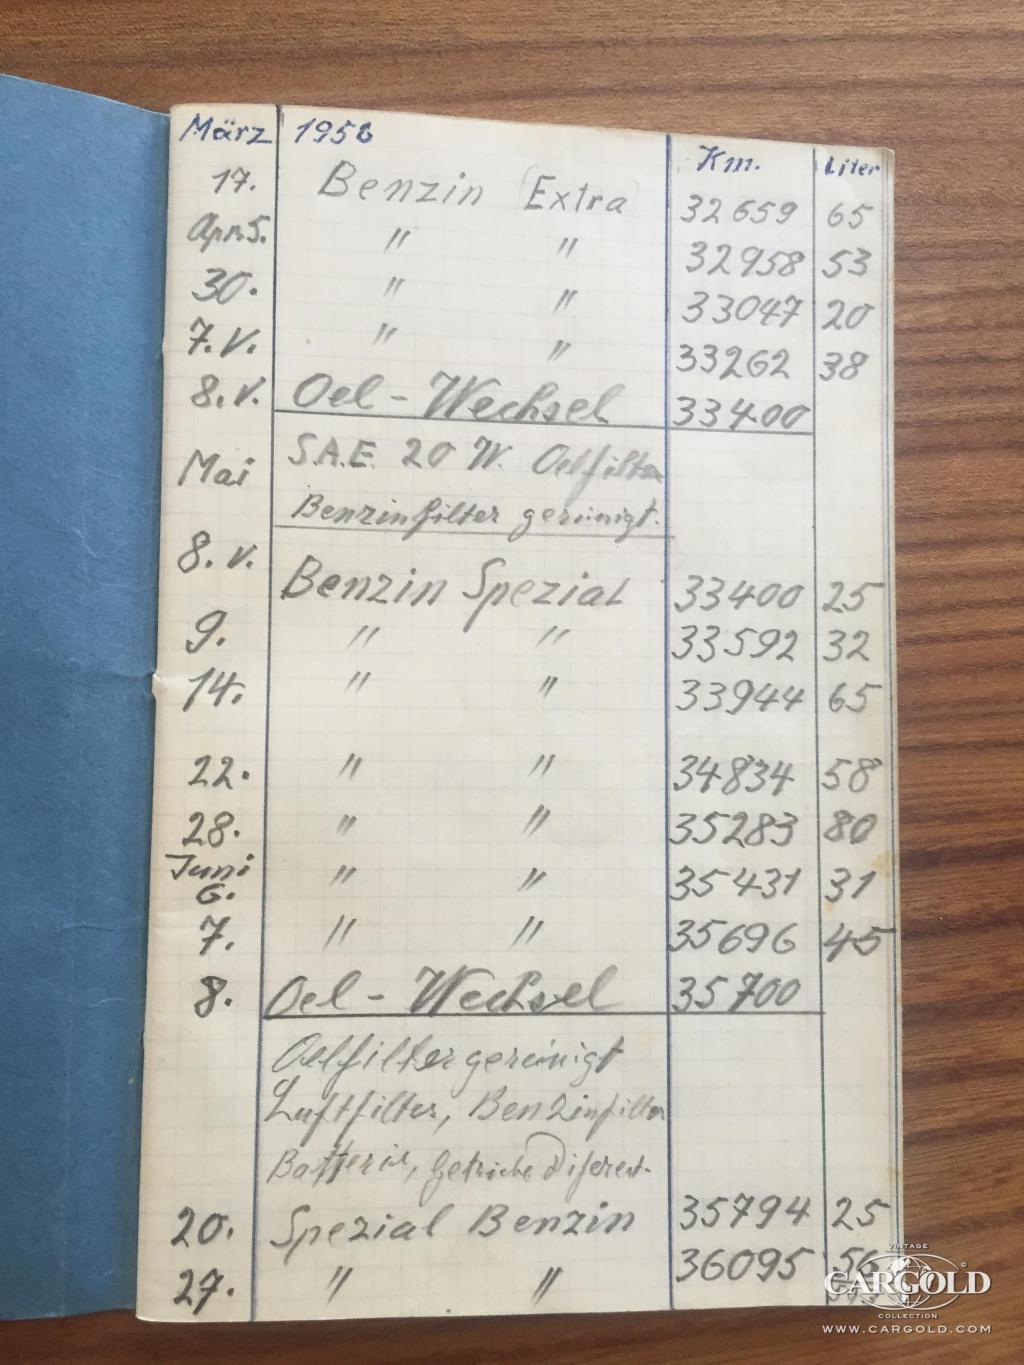 März 1958 Km. Liter
17. Benzin (Extra) 32659 65
Apr. 5. " " 32958 53
30. " " 33047 20
7. V. " " 33262 38
8. V. Oel - Wechsel 33400
Mai S.A.E. 20 W. Oelfilter
Benzinfilter gereinigt.
8. V. Benzin Spezial 33400 25
9. " " 33592 32
14. " " 33944 65
22. " " 34834 58
28. " " 35283 80
Juni
6. " " 35431 31
7. " " 35696 45
8. Oel - Wechsel 35700
Oelfilter gereinigt
Luftfilter, Benzinfilter
Batterie, Getriebe Diferent.
20. Spezial Benzin 35794 25
27. " " 36095 56
VINTAGE
CARGOLD
COLLECTION
WWW.CARGOLD.COM